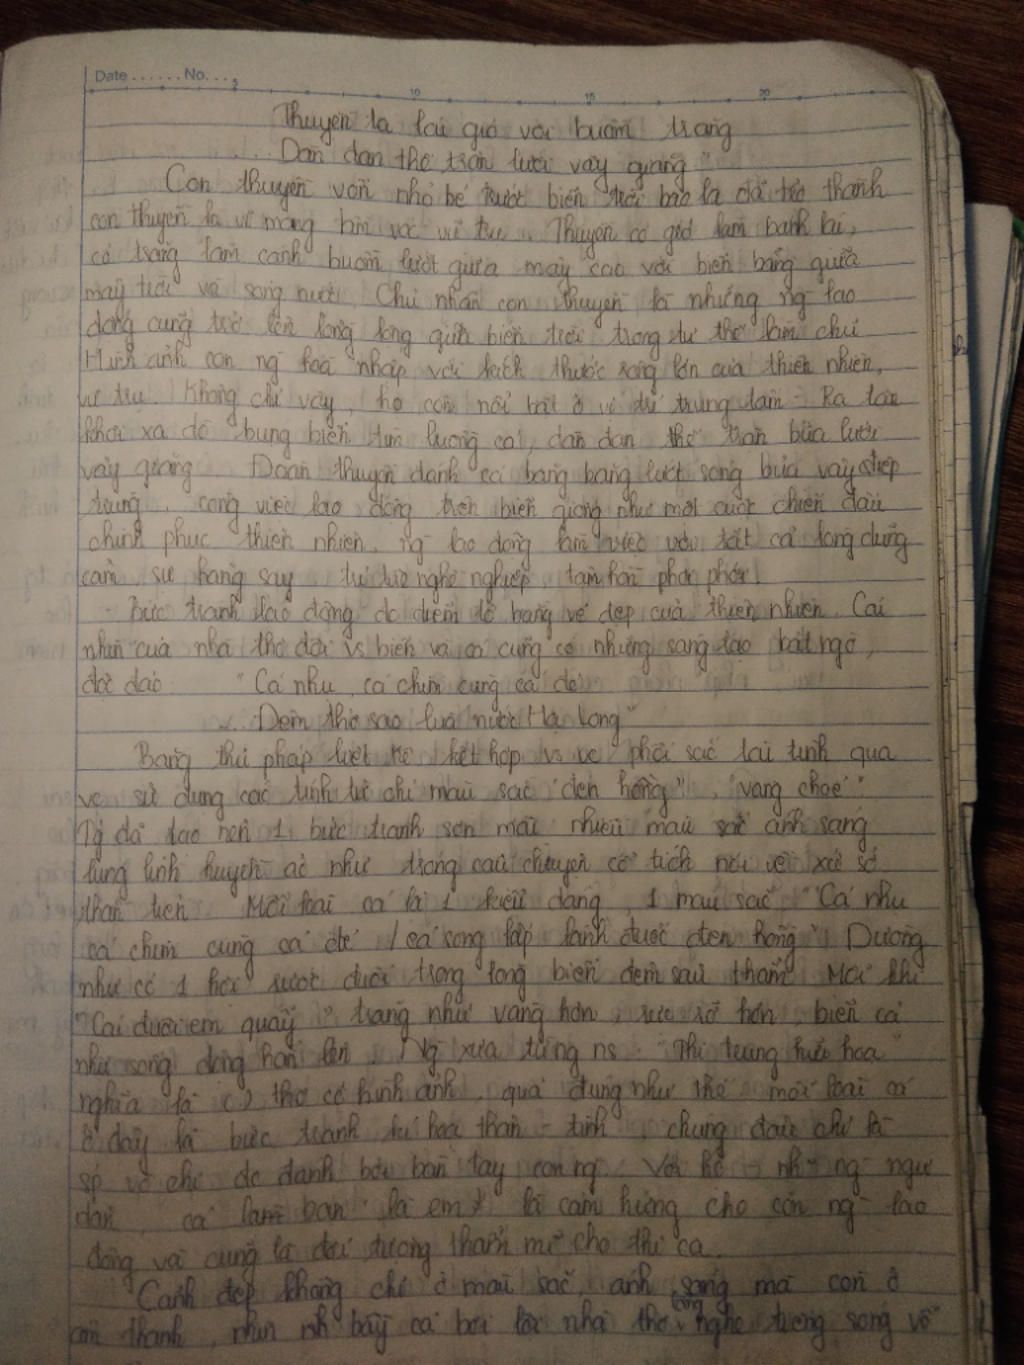 Date ...... No....
5 10 15 20
Thuyền ta lái gió với buồm trăng
... Dàn đan thế trận lưới vây giăng"
Con thuyền vốn nhỏ bé trước biển trời bao la đã trở thành
con thuyền la vĩ mang tầm vóc vũ trụ. Thuyền có gió làm bánh lái,
có trăng làm cánh buồm lướt giữa mây cao với biển bằng giữa
mây trời và sóng nước. Chủ nhân con thuyền là những ng lao
động cũng trở lên lồng lộng giữa biển trời trong tư thế làm chủ
Hình ảnh con ng hoà nhập với kích thước rộng lớn của thiên nhiên,
vũ trụ. Không chỉ vậy, họ còn nổi bật ở vị trí trung tâm - Ra tận
khơi xa dò bụng biển tìm luồng cá, dàn đan thế trận bủa lưới
vây giăng. Đoàn thuyền đánh cá băng băng lướt sóng bủa vây điệp
trùng. công việc lao động trên biển giống như một cuộc chiến đấu
chinh phục thiên nhiên. ng lao động làm việc với tất cả lòng dũng
cảm, sự hăng say trí tuệ nghề nghiệp, tâm hồn phơi phới!
- Bức tranh lao động dc điểm tô bằng vẻ đẹp của thiên nhiên. Cái
nhìn của nhà thơ đối vs biển và cá cũng có những sáng tạo bất ngờ,
độc đáo "Cá nhụ, cá chim cùng cá đé
... Đêm thở sao lùa nước Hạ Long"
Bằng thủ pháp liệt kê kết hợp vs vc phối sắc tài tình qua
vc sử dụng các tính từ chỉ màu sắc "đen hồng", "vàng choé"
Tg đã tạo nên 1 bức tranh sơn mài nhiều màu sắc ánh sáng
lung linh huyền ảo như trong câu chuyện cổ tích nói về xứ sở
thần tiên. Mỗi loài cá là 1 kiểu dáng, 1 màu sắc "Cá nhụ
cá chim cùng cá đé / cá song lấp lánh đuốc đen hồng". Dường
như có 1 hội rước đuốc trong lòng biển đêm sâu thẳm. Mỗi khi
"Cái đuôi em quẫy" trăng như vàng hơn, rực rỡ hơn, biển cả
như sống động hẳn lên. Ng xưa từng ns "Thi trung hữu hoạ"
nghĩa là () thơ có hình ảnh, quả đúng như thế mỗi loài cá
ở đây là bức tranh kí hoạ thần - tình, chúng đâu chỉ là
sp vô chi dc đánh bởi bàn tay con ng. Với họ - nh~ ng ngư
dân, cá làm bạn là em, là cảm hứng cho con ng lao
động và cũng là đối tượng thẩm mĩ cho thi ca.
Cảnh đẹp không chỉ ở màu sắc, ánh sáng mà còn ở
âm thanh, nhìn nh~ bầy cá bơi lội nhà thơ còn nghe tiếng sóng vỗ